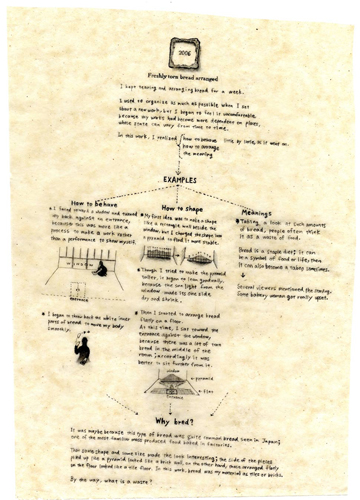 2006
Freshly torn bread arranged
I kept tearing and arranging bread for a week.
I used to organise as much as possible when I set
about a new work, but I began to feel it uncomfortable
because my works had become more dependent on places,
whose state can vary from time to time.
In this work, I realised how to behave little by little, as it went on.
how to arrange
the meaning
EXAMPLES
How to behave
I faced toward a window and turned
my back against to entrance,
because this was more like a
process to make a work rather
than a performance to show myself.
entrance
I began to show both the white inner
parts of bread, to move my body
smoothly.
How to shape
My first idea was to make a shape
like a rectangle wall beside the
window, but I changed the shape into
a pyramid to keep it more stable.
Though I tried to make the pyramid
taller, it began to lean gradually,
because the sun light from the
window made its one side
dry and shrink.
Then I started to arrange bread
flatly on a floor.
At this time, I sat toward the
entrance against the window,
because there was a lot of torn
bread in the middle of the
room; accordingly it was
better to sit further from it.
window
a pyramid
a floor
entrance
Meanings
Taking a look at such amounts
of bread, people often think
it as a waste of food.
Bread is a staple diet; it can
be a symbol of food or life; then
it can also become a taboo sometimes.
Several viewers mentioned the
Some bakery woman got really upset.
Why bred?
It was maybe because this type of bread was quite common bread seen in Japan;
one of the most familiar mass produced food baked in factories.
This same shape and same size made the look interesting; the side of the pieces
piled up like a pyramid looked like a brick wall, on the other hand, those arranged flatly
on the floor looked like a tile floor. In this work, bread was my material as tiles or bricks.
By the way, what is a waste?